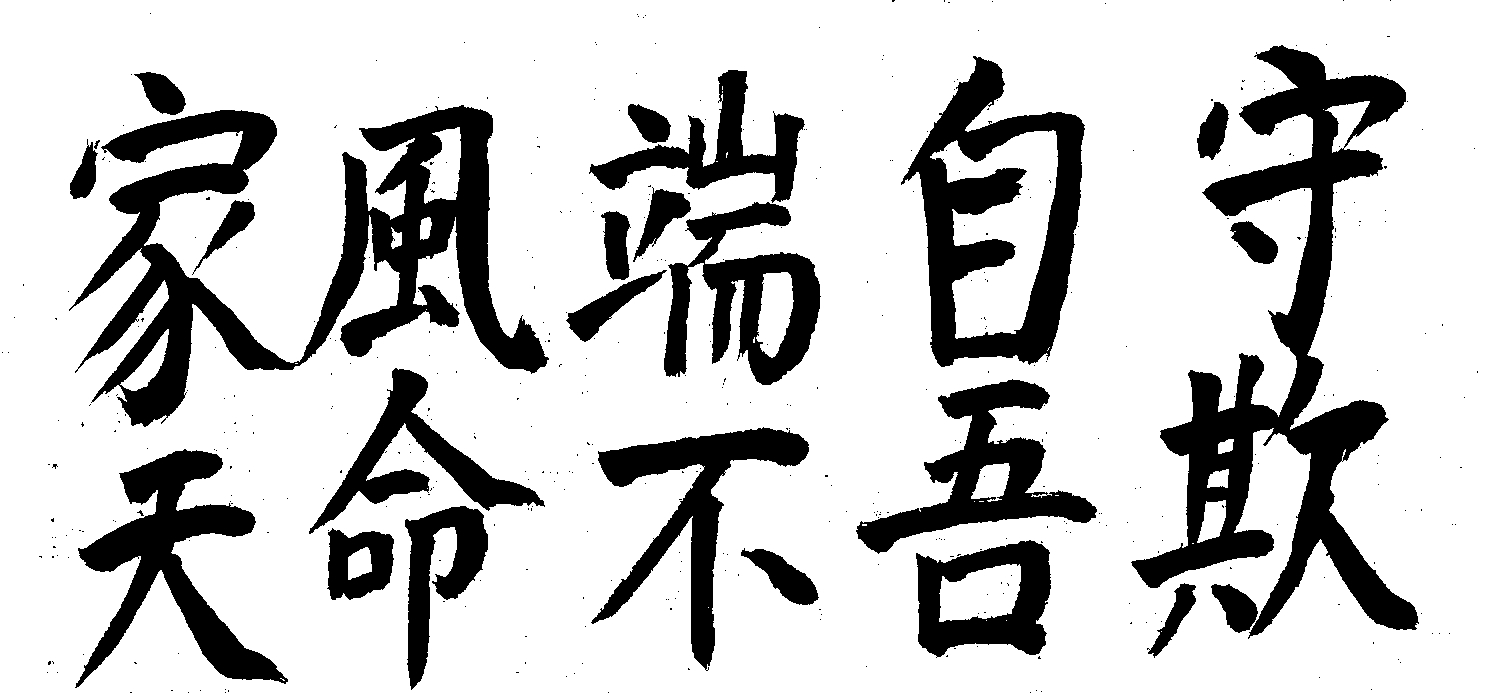 家風端自守
天命不吾欺